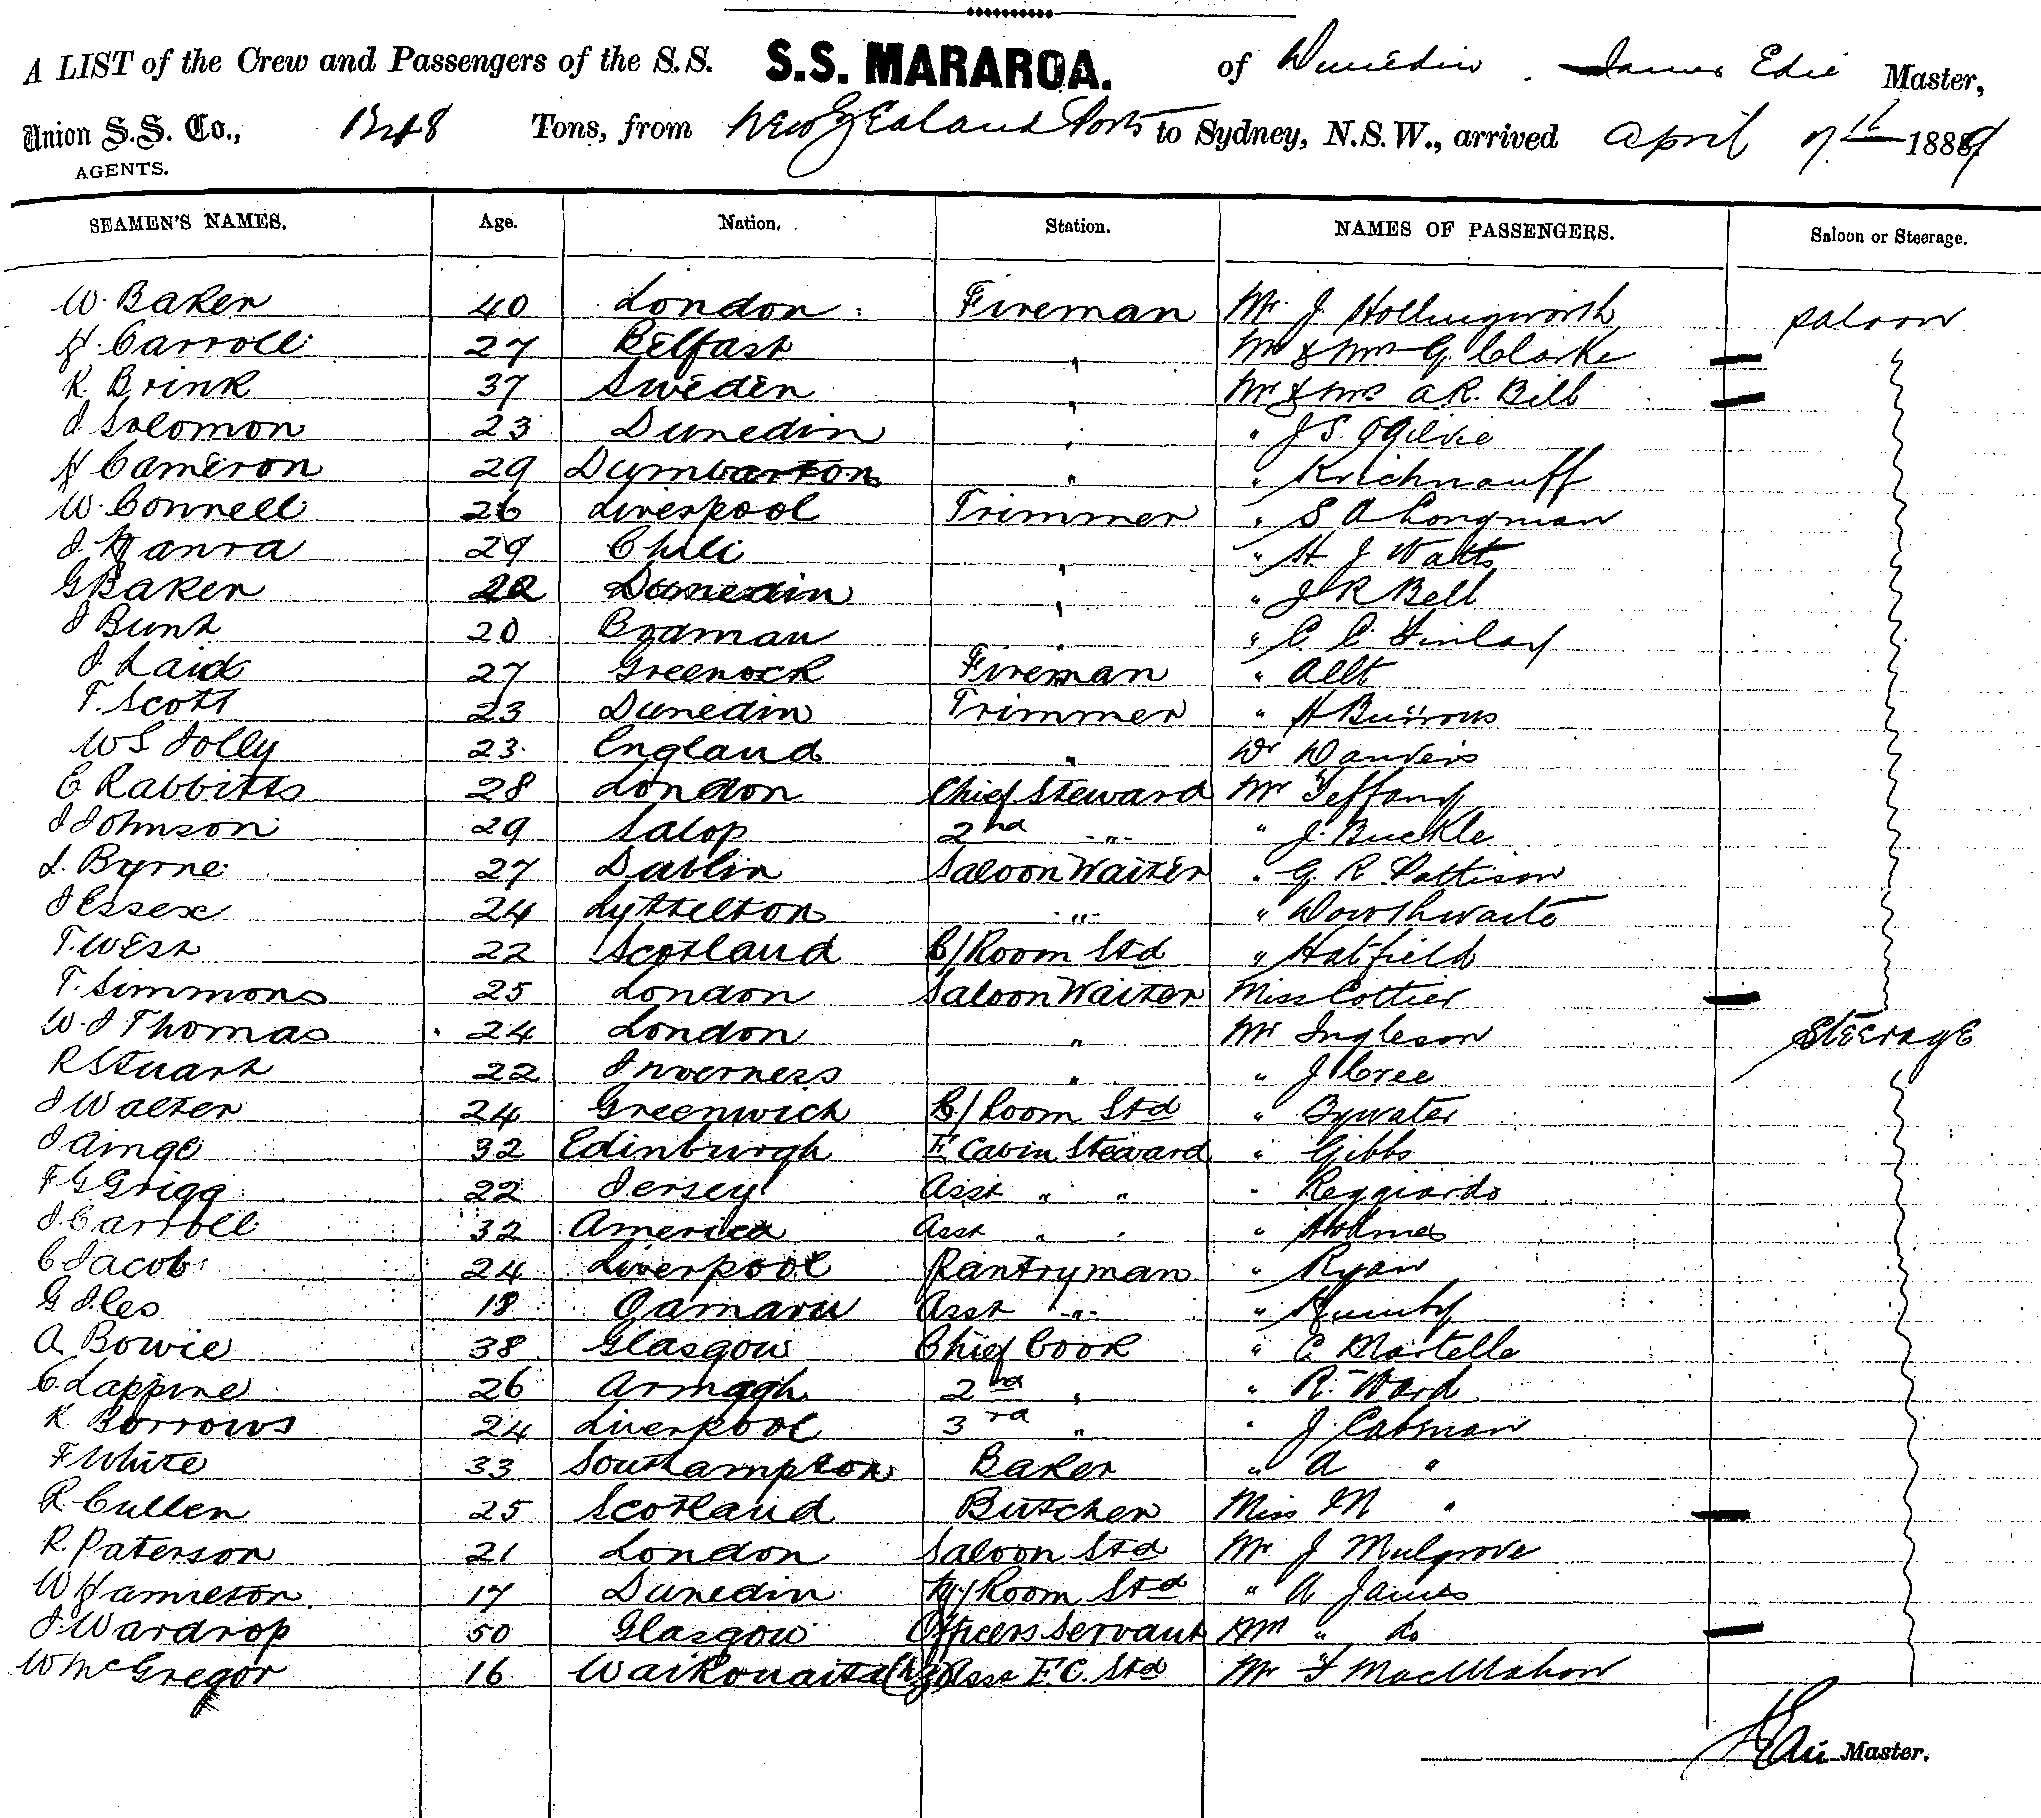 A LIST of the Crew and Passengers of the S.S. S.S. MARAROA. of Dunedin. James Edie Master,
Union S.S. Co., 1248 Tons, from New Zealand Ports to Sydney, N.S.W., arrived April 7th 1889
AGENTS.
SEAMEN'S NAMES. Age. Nation. Station. NAMES OF PASSENGERS. Saloon or Steerage.
W. Baker 40 London Fireman Mr. J Hollingworth Saloon
H. Carroll 27 Belfast " Mr & Mrs G. Clarke
K Brink 37 Sweden " Mr & Mrs A.R. Bill
J Solomon 23 Dunedin " " J S. Ogilvie
H Cameron 29 Dumbarton " " Krichnauff
W. Connell 26 Liverpool Trimmer " S A Longman
J 29 Chili " " H J Watts
G Baker 22 Dunedin " " J R Bell
J Bunt 20 Bodman " " C C. Finlay
J Laid 27 Greenock Fireman " Allt
T. Scott 23 Dunedin Trimmer " A Burrows
W S Jolly 23 England " Dr
C Rabbitts 28 London Chief Steward Mr Teffany
J Johnson 29 Salop 2nd " " J. Buckle
L. Byrne 27 Dublin Saloon Waiter " G R Pattison
J Essex 24 Lyttelton " " Dowthwaite
T. West 22 Scotland B/Room Std " Hatfield
T. Simmons 25 London Saloon Waiter Miss Cottier
W. J Thomas 24 London " Mr Ingleson Steerage
R Stuart 22 Inverness " " J Cree
J Walter 24 Greenwich B/Room Std " Bywater
J Ainge 32 Edinburgh F Cabin Steward " Gibbs
F G Grigg 22 Jersey Asst " " " Reggiardo
J Carroll 32 America Asst " " " Holmes
C Jacob 24 Liverpool Pantryman " Ryan
G Iles 18 Oamaru Asst " "
A Bowie 38 Glasgow Chief Cook " C Martelle
C. Lappine 26 Armagh 2nd " " R. Ward
K Borrows 24 Liverpool 3rd " " J. Catman
F White 33 Southampton Baker " A "
R. Cullen 25 Scotland Butcher Miss M "
R. Paterson 21 London Saloon Std Mr J Mulgrove
W Hamilton 17 Dunedin M/Room Std " A James
J. Wardrop 50 Glasgow Officers Servant Mrs " do
W McGregor 16 Waikouaiti (NZ) Asst F.C. Std Mr F MacMahon
Master.